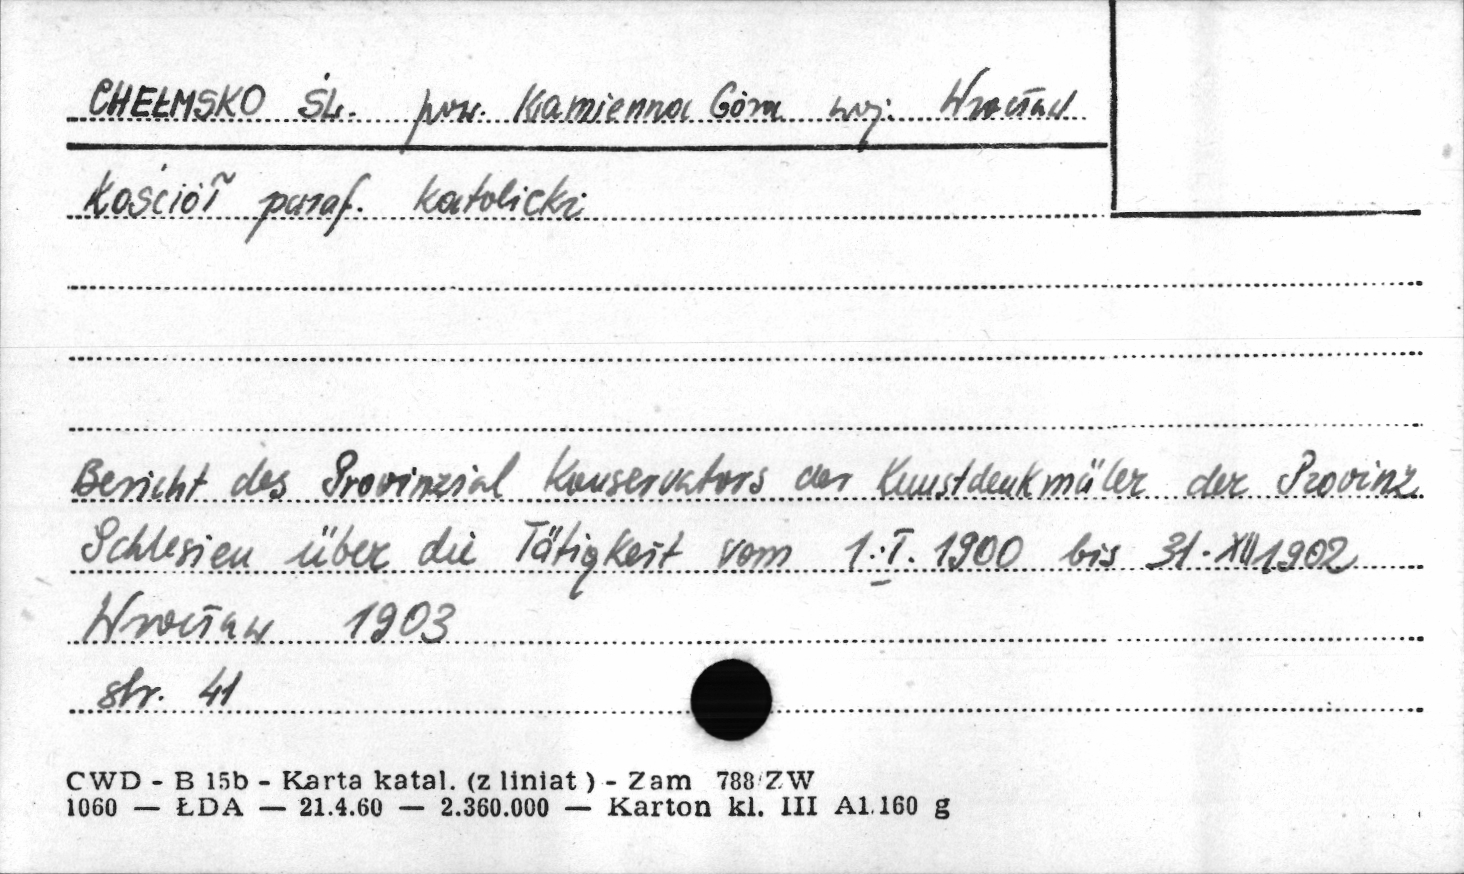 CHEŁMSKO ŚL. pow. Kamienna Góra woj. Wrocław
Kościół paraf. katolicki
Bericht des Provinzial Konservators der Kunstdenkmäler der Provinz
Schlesien über die Tätigkeit vom 1.I. 1900 bis 31.XII 1902
Wrocław 1903
str. 41
CWD - B 15b - Karta katal. (z liniat ) - Zam 788/ZW
1060 — ŁDA — 21.4.60 — 2.360.000 — Karton kl. III A1.160 g